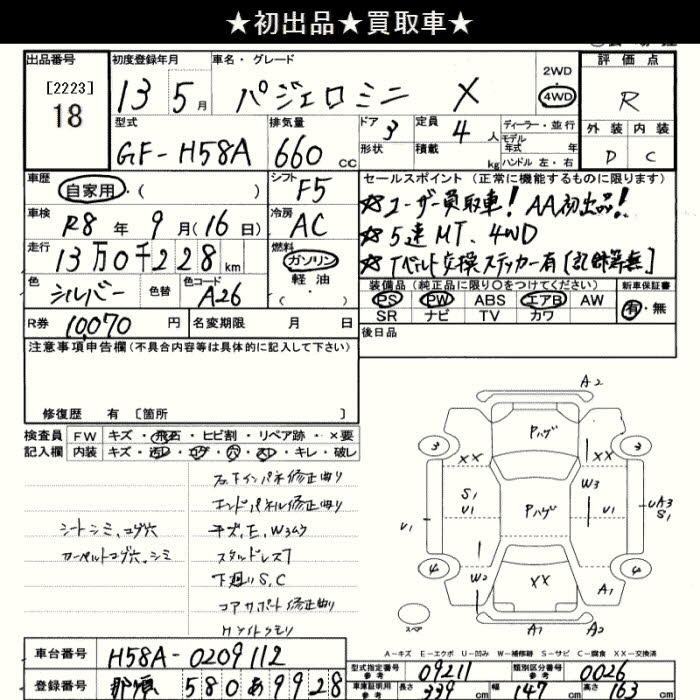 ★初出品★買取車★
出品番号 初度登録年月 車名・グレード 2WD 評価点
[2223] 18 13 5月 パジェロミニ X 4WD R
型式 排気量 ドア 3 定員 4人 ディーラー・並行 外装 内装
GF-H58A 660cc 形状 積載 kg モデル年式 年 D C
ハンドル 左・右
車歴 自家用・( ) シフト F5 セールスポイント (正常に機能するものに限ります)
車検 R8年 9月(16日) 冷房 AC ☆ユーザー買取車! AA初出品!!
☆5速MT、4WD
走行 13万0千228km 燃料 ガソリン ☆Tベルト交換ステッカー有[記録簿無]
色 シルバー 色替 色コード A26 軽油 ( )
装備品 (純正品に限り○をつけてください) 新車保証書
PS PW ABS エアB AW 有・無
R券 10,070円 名変期限 月 日 SR ナビ TV カワ
注意事項申告欄(不具合内容等は具体的に記入して下さい) 後日品
修復歴 有 [箇所 ]
検査員 FW キズ・飛石・ヒビ割・リペア跡・×要
記入欄 内装 キズ・汚レ・コゲ・穴・スレ・キレ・破レ
右下インパネ修正曲り
エンドパネル修正曲り
シートシミ、コゲ穴 キズ、E、W3ムラ
カーペットコゲ穴、シミ スタッドレス7
下廻りS、C
コアサポート修正曲り
ヘッドライトクモリ
A2
Pハゲ
3 XX XX 3
S1 W3
U1 U1 Pハゲ U1 UA3 S1
4 W2 XX A1 4
スペア A1 A2
A-キズ E-エクボ U-凹み W-補修跡 S-サビ C-腐食 XX-交換済
車台番号 H58A-0209112 型式指定番号 参考 09211 類別区分番号 参考 0026
登録番号 那須 580 あ 9928 車庫証明用 参考 長さ 339cm 幅 147cm 高さ 163cm